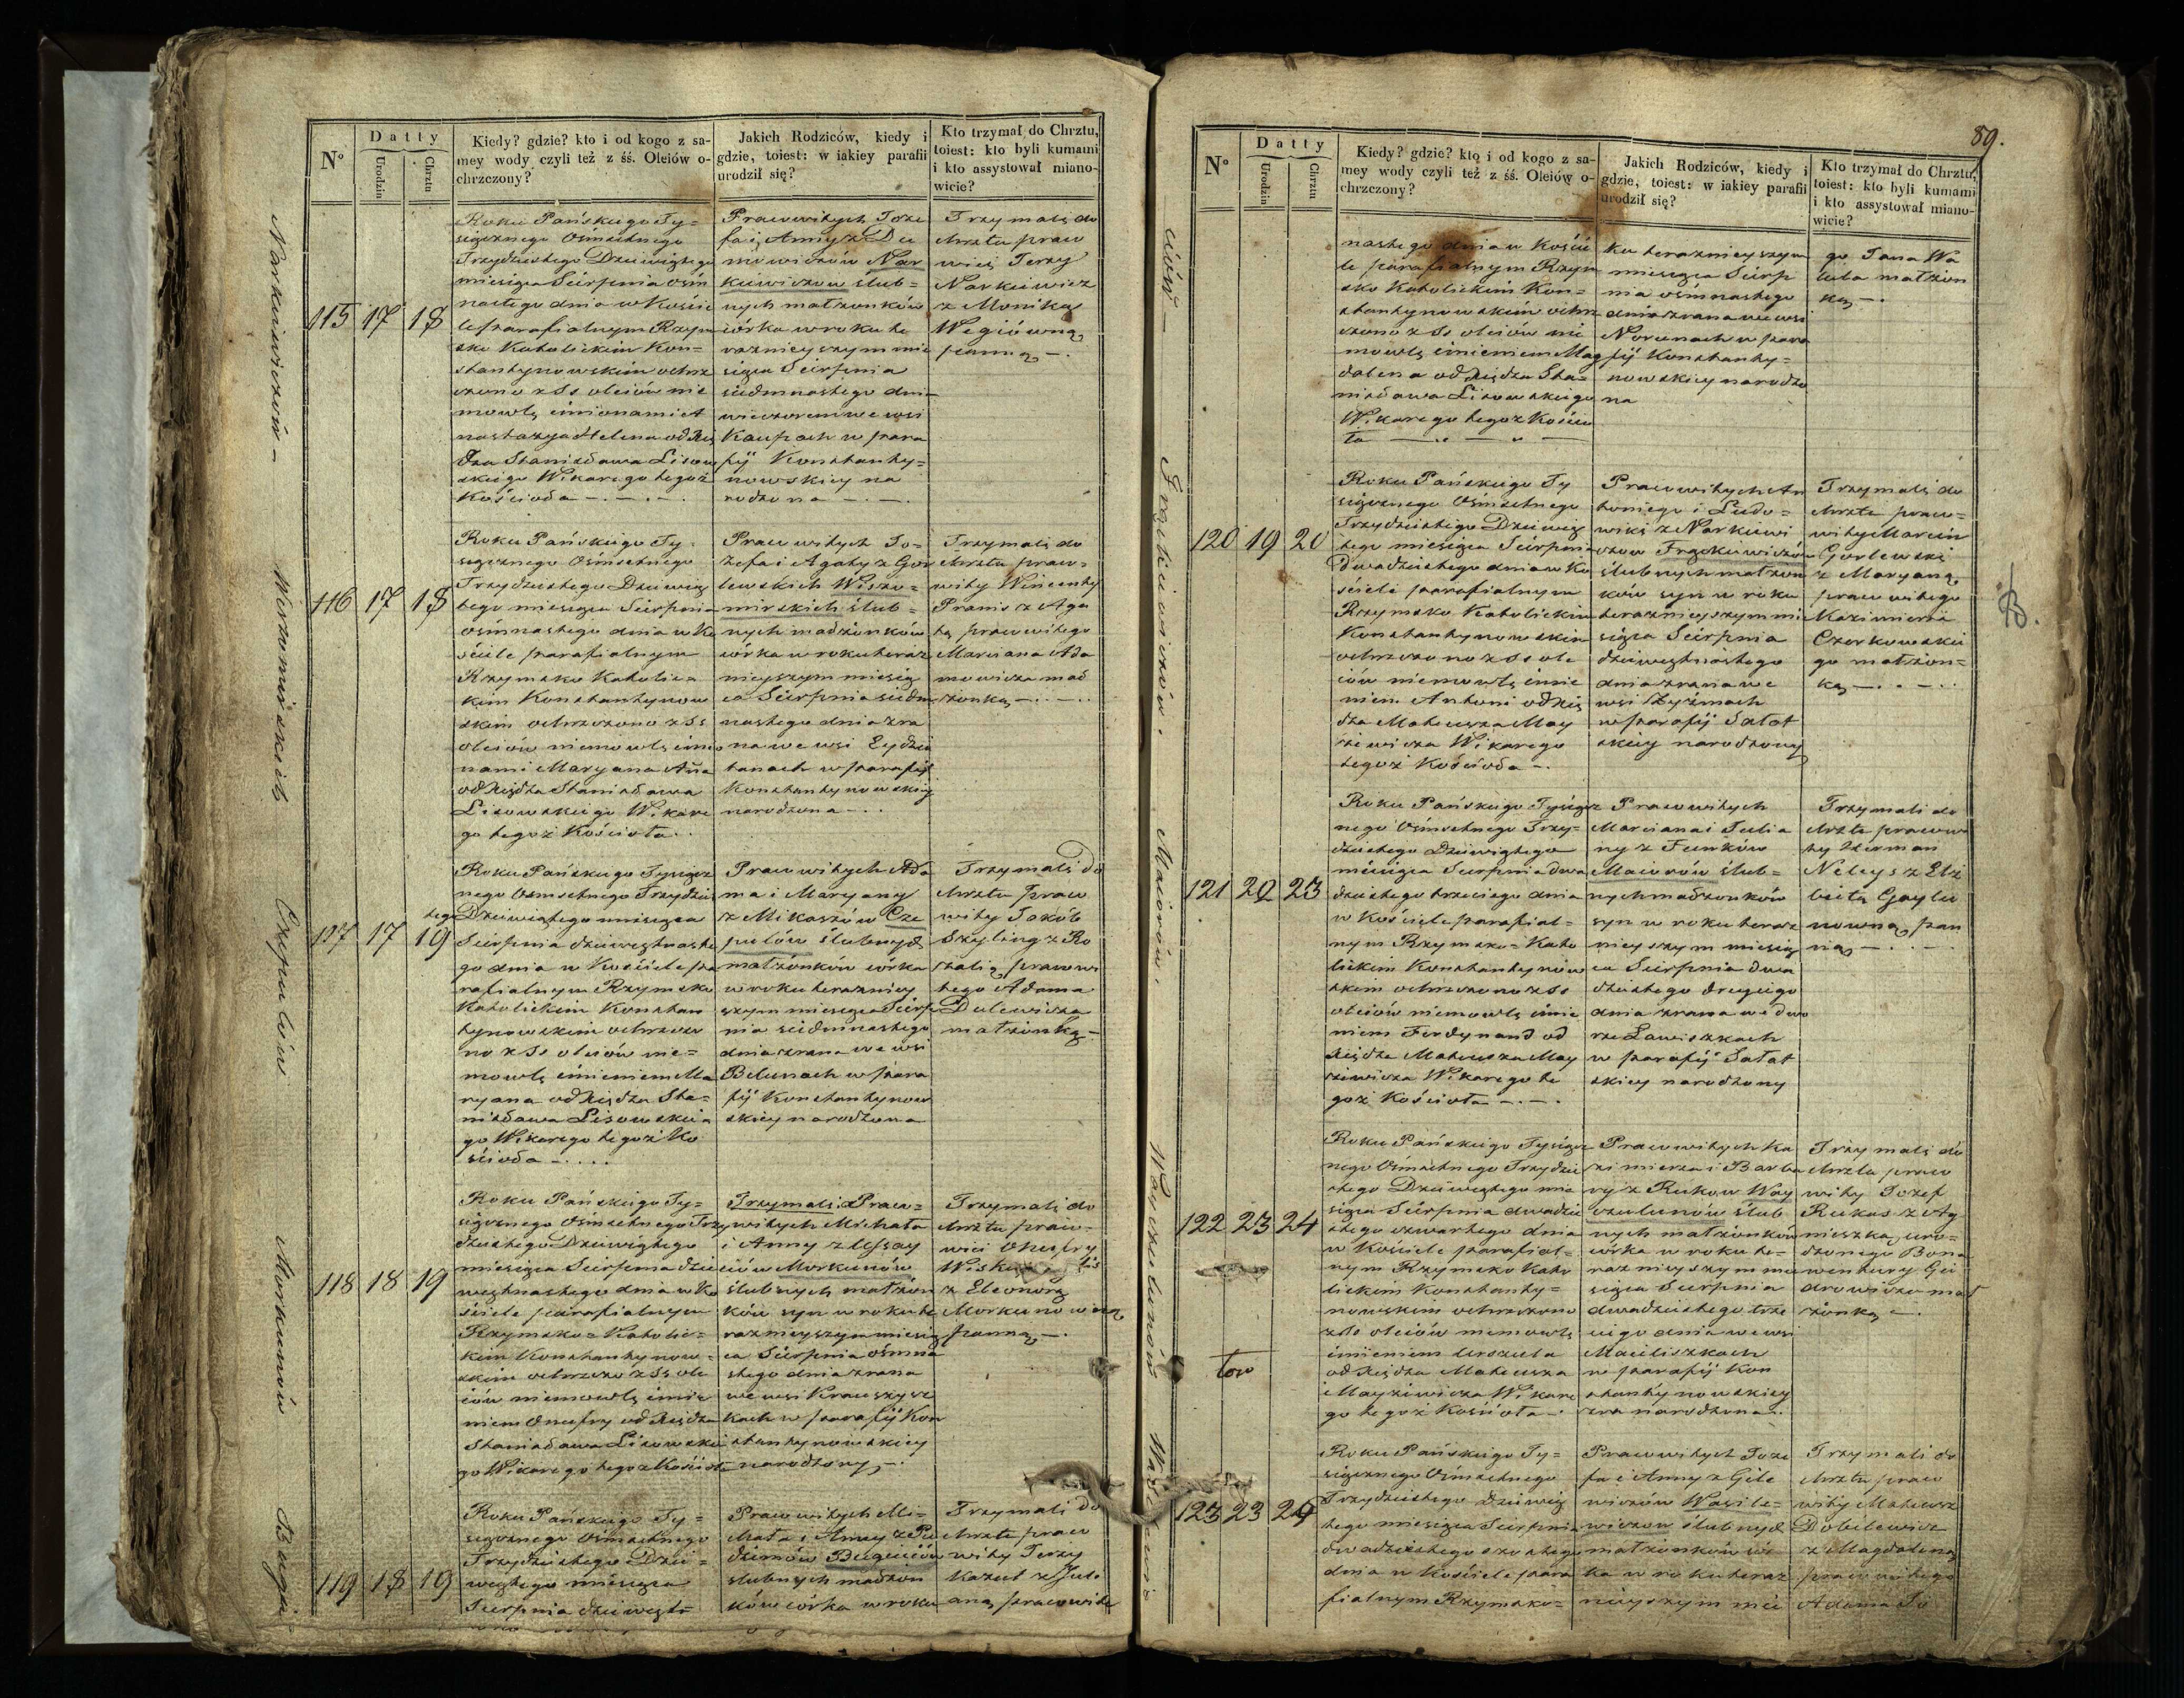 N°
Datty
Urodzin
Chrztu
Kiedy? gdzie? kto i od kogo z sa-
mey wody czyli też z śś. Oleiów o-
chrzczony?
Jakich Rodziców, kiedy i
gdzie, toiest: w iakiey parafii
urodził się?
Kto trzymał do Chrztu,
toiest: kto byli kumami
i kto assystował miano-
wicie?
Narkiewiczów –
115 17 18
Roku Pańskiego Ty=
siącznego Ośmsetnego
Trzydziestego Dziewiątego
miesiąca Sierpnia ośm
nastego dnia w Kościé
le parafialnym Rzym
sko Katolickim Kon=
stantynowskim ochrz
czono z Ss oleiów nie
mowlę imionami A
nastazya Helena od Xię
dza Stanisława Lisow
skiego Wikarego tegoż
Kościoła –.–.–
Pracowitych Joze
fa i Anny z Du
mowiczów Nar
kiewiczow ślub=
nych małżonków
córka w roku te
raznieyszym mie
siąca Sierpnia
siedmnastego dnia
wieczorem we wsi
Kaupach w para
fij Konstanty=
nowskiey na
rodzona –.–.
Trzymali do
chrztu praco
wici Jerzy
Narkiewicz
z Moniką
panną –.
116 17 18
Roku Pańskiego Ty
siącznego Ośmsetnego
Trzydziestego Dziewią
tego miesiąca Sierpnia
ośmnastego dnia w Ko
ściele parafialnym
Rzymsko Katolic=
kim Konstantynow
skim ochrzczono z Ss
oleiów niemowlę imio
nami Maryana Anna
od Xiędza Stanisława
Lisowskiego Wikare
go tegoż Kościoła..
Pracowitych Jo=
zefa i Agaty z Gor
lewskich Wiszo=
mirskich ślub=
nych małżonków
córka w roku teraz
nieyszym miesią
ca Sierpnia siedm
nastego dnia zra
na we wsi
w parafij
Konstantynowskiey
narodzona –..
Trzymali do
chrztu praco=
wity Wincenty
Pranis z Aga
tą pracowitego
Marciana Ada
mowicza mał
żonką –..–..
Czepulów
117 17 19
Roku Pańskiego Tysiącz
nego Ośmsetnego Trzydzies
tego Dziewiątego miesiąca
Sierpnia dziewiętnaste
go dnia w Kościele pa
rafialnym Rzymsko
Katolickim Konstan
tynowskim ochrzczo
no z Ss oleiów nie=
mowlę imieniem Ma
ryana od Xiędza Sta=
nisława Lisowskie
go Wikarego tegoż Ko
ścioła –....
Pracowitych Ada
ma i Maryany
z Mikaszów Cze
pulów ślubnych
małżonków córka
w roku terazniey
szym miesiąca Sierp
nia siedmnastego
dnia zrana we wsi
Bilunach w para
fij Konstantynow
skiey narodzona
Trzymali do
chrztu praco
wity Jakób
Szyling z Ro
zalią pracowi
tego Adama
Dulewicza
małżonką –
Morkunów
118 18 19
Roku Pańskiego Ty=
siącznego Ośmsetnego Trzy
dziestego Dziewiątego
miesiąca Sierpnia dzie
więtnastego dnia w Ko
ściele parafialnym
Rzymsko=Katolic=
kim Konstantynow=
skim ochrzczo z Ss ole
iów niemowlę imie
niem Onufry od Xiędza
Stanisława Lisowskie
go Wikarego tegoż Kościoła
Trzymali Praco=
witych Michała
i Anny z Ussay
ciów Morkunów
ślubnych małżon
ków syn w roku te
raznieyszym miesią
ca Sierpnia ośmna
stego dnia zrana
we wsi Krauszysz
kach w parafij Kon
stantynowskiey
narodzony –.
Trzymali do
chrztu praco=
wici Onufry
z Eleonorą
Morkunowną
panną –.
119 18 19
Roku Pańskiego Ty=
siącznego Ośmsetnego
Trzydziestego Dzie=
wiątego miesiąca
Sierpnia dziewięt=
Pracowitych Mi=
chała i Anny z Pu
dzimów Bugieciów
ślubnych małżon
ków córka w roku
Trzymali do
chrztu praco
wity Jerzy
Kazut z Jule
aną pracowite
89.
N°
Datty
Urodzin
Chrztu
Kiedy? gdzie? kto i od kogo z sa-
mey wody czyli też z śś. Oleiów o-
chrzczony?
Jakich Rodziców, kiedy i
gdzie, toiest: w iakiey parafii
urodził się?
Kto trzymał do Chrztu,
toiest: kto byli kumami
i kto assystował miano-
wicie?
ciów –
nastego dnia w Kościé
le parafialnym Rzym
sko Katolickim Kon=
stantynowskim ochrz
czono z Ss oleiów nie
mowlę imieniem Mag
dalena od Xiędza Sta=
nisława Lisowskiego
Wikarego tegoż Kościo
ła –.–.–
ku teraznieyszym
miesiąca Sierp
nia ośmnastego
dnia zrana we wsi
Norunach w para
fij Konstanty=
nowskiey narodzo
na
go Jana Wa
lula małżon
ką –.
120 19 20
Roku Pańskiego Ty
siącznego Ośmsetnego
Trzydziestego Dziewią
tego miesiąca Sierpnia
Dwudziestego dnia w Ko
ściele parafialnym
Rzymsko Katolickim
Konstantynowskim
ochrzczono z Ss ole
iów niemowlę imie
niem Antoni od Xię
dza Mateusza May
ziewicza Wikarego
tegoż Kościoła –.
Pracowitych An
toniego i Ludo=
wiki z Narkiewi
czow Frąckiewiczów
ślubnych małżon
ków syn w roku
teraznieyszym mie
siąca Sierpnia
dziewiętnastego
dnia zrana we
wsi Łyźmach
w parafij Salat
skiey narodzony
Trzymali do
chrztu praco=
wity Marcin
Gorlewski
z Maryaną
pracowitego
Kazimierza
Czerkowskie
go małżon=
ką –..–..
Maciorów.
121 22 23
Roku Pańskiego Tysiącz
nego Ośmsetnego Trzy=
dziestego Dziewiątego
miesiąca Sierpnia dwu
dziestego trzeciego dnia
w Kościele parafial=
nym Rzymsko=Kato
lickim Konstantynow
skim ochrzczono z Ss
oleiów niemowlę imie
niem Ferdynand od
Xiędza Mateusza May
ziewicza Wikarego te
goż Kościoła –.–.
Pracowitych
Marciana i Julia
ny z Funków
Maciorów ślub=
nych małżonków
syn w roku teraz
nieyszym miesią
ca Sierpnia dwu
dziestego drugiego
dnia zrana we dwo
rze Ławiszkach
w parafij Salat
skiey narodzony
Trzymali do
chrztu pracowi
ty Herman
Neleys z Elż
bietą Gaylu
nowną pan
ną –.–.
Wayczulunów
122 23 24
Roku Pańskiego Tysiącz
nego Ośmsetnego Trzydzie
stego Dziewiątego mie
siąca Sierpnia dwudzie
stego czwartego dnia
w Kościele parafial=
nym Rzymsko Kato
lickim Konstanty=
nowskim ochrzczono
z Ss oleiów niemowlę
imieniem Urszula
od Xiędza Mateusza
Mayziewicza Wikare
go tegoż Kościoła –.
Pracowitych Ka
zimierza i Barba
ry z Rukow Way
czulunów ślub
nych małżonków
córka w roku te=
raznieyszym mie
siąca Sierpnia
dwudziestego trze
ciego dnia we wsi
Maciliszkach
w parafij Kon
stantynowskiey
narodzona..
Trzymali do
chrztu praco
wity Jozef
Rukas z Ag
nieszką uro=
dzonego Bona
wentury Gie
drowicza mał
żonką –.
123 23 24
Roku Pańskiego Ty=
siącznego Ośmsetnego
Trzydziestego Dziewią
tego miesiąca Sierpnia
dwudziestego czwartego
dnia w Kościele para
fialnym Rzymsko=
Pracowitych Joze
fa i Anny z Gile
wiczów Wasile=
wiczow ślubnych
małżonków cór
ka w roku teraz
nieyszym mie
Trzymali do
chrztu praco
wity Mateusz
Dobilewicz
z Magdaleną
pracowitego
Adama Jo